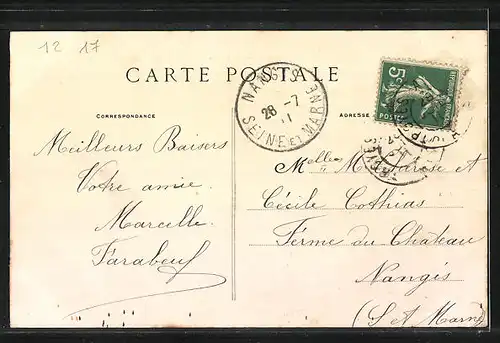 12 17
CARTE POSTALE
CORRESPONDANCE
ADRESSE
NANGIS
28 -7
11
SEINE ET MARNE
5c
POSTES
Meilleurs Baisers
Votre amie
Marcelle
Farabeuf
Melles et
Cécile Cothias
Ferme du Chateau
Nangis
(S et Marne